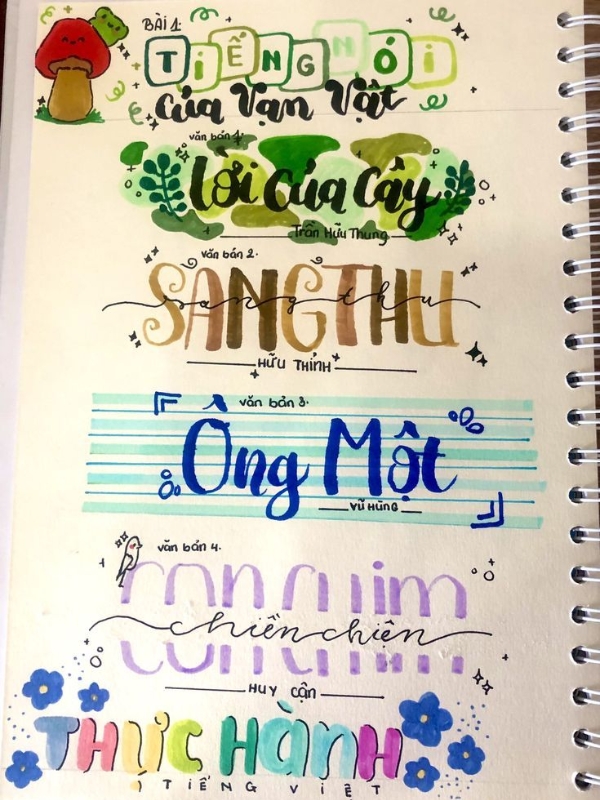 BÀI 1:
TIẾNG NÓI
Của Vạn Vật
văn bản 1.
Lời Của Cây
Trần Hữu Thung
văn bản 2.
SANG THU
sang thu
HỮU THỈNH
văn bản 3.
Ông Một
VŨ HÙNG
văn bản 4.
con chim
chiền chiện
HUY CẬN
THỰC HÀNH
TIẾNG VIỆT